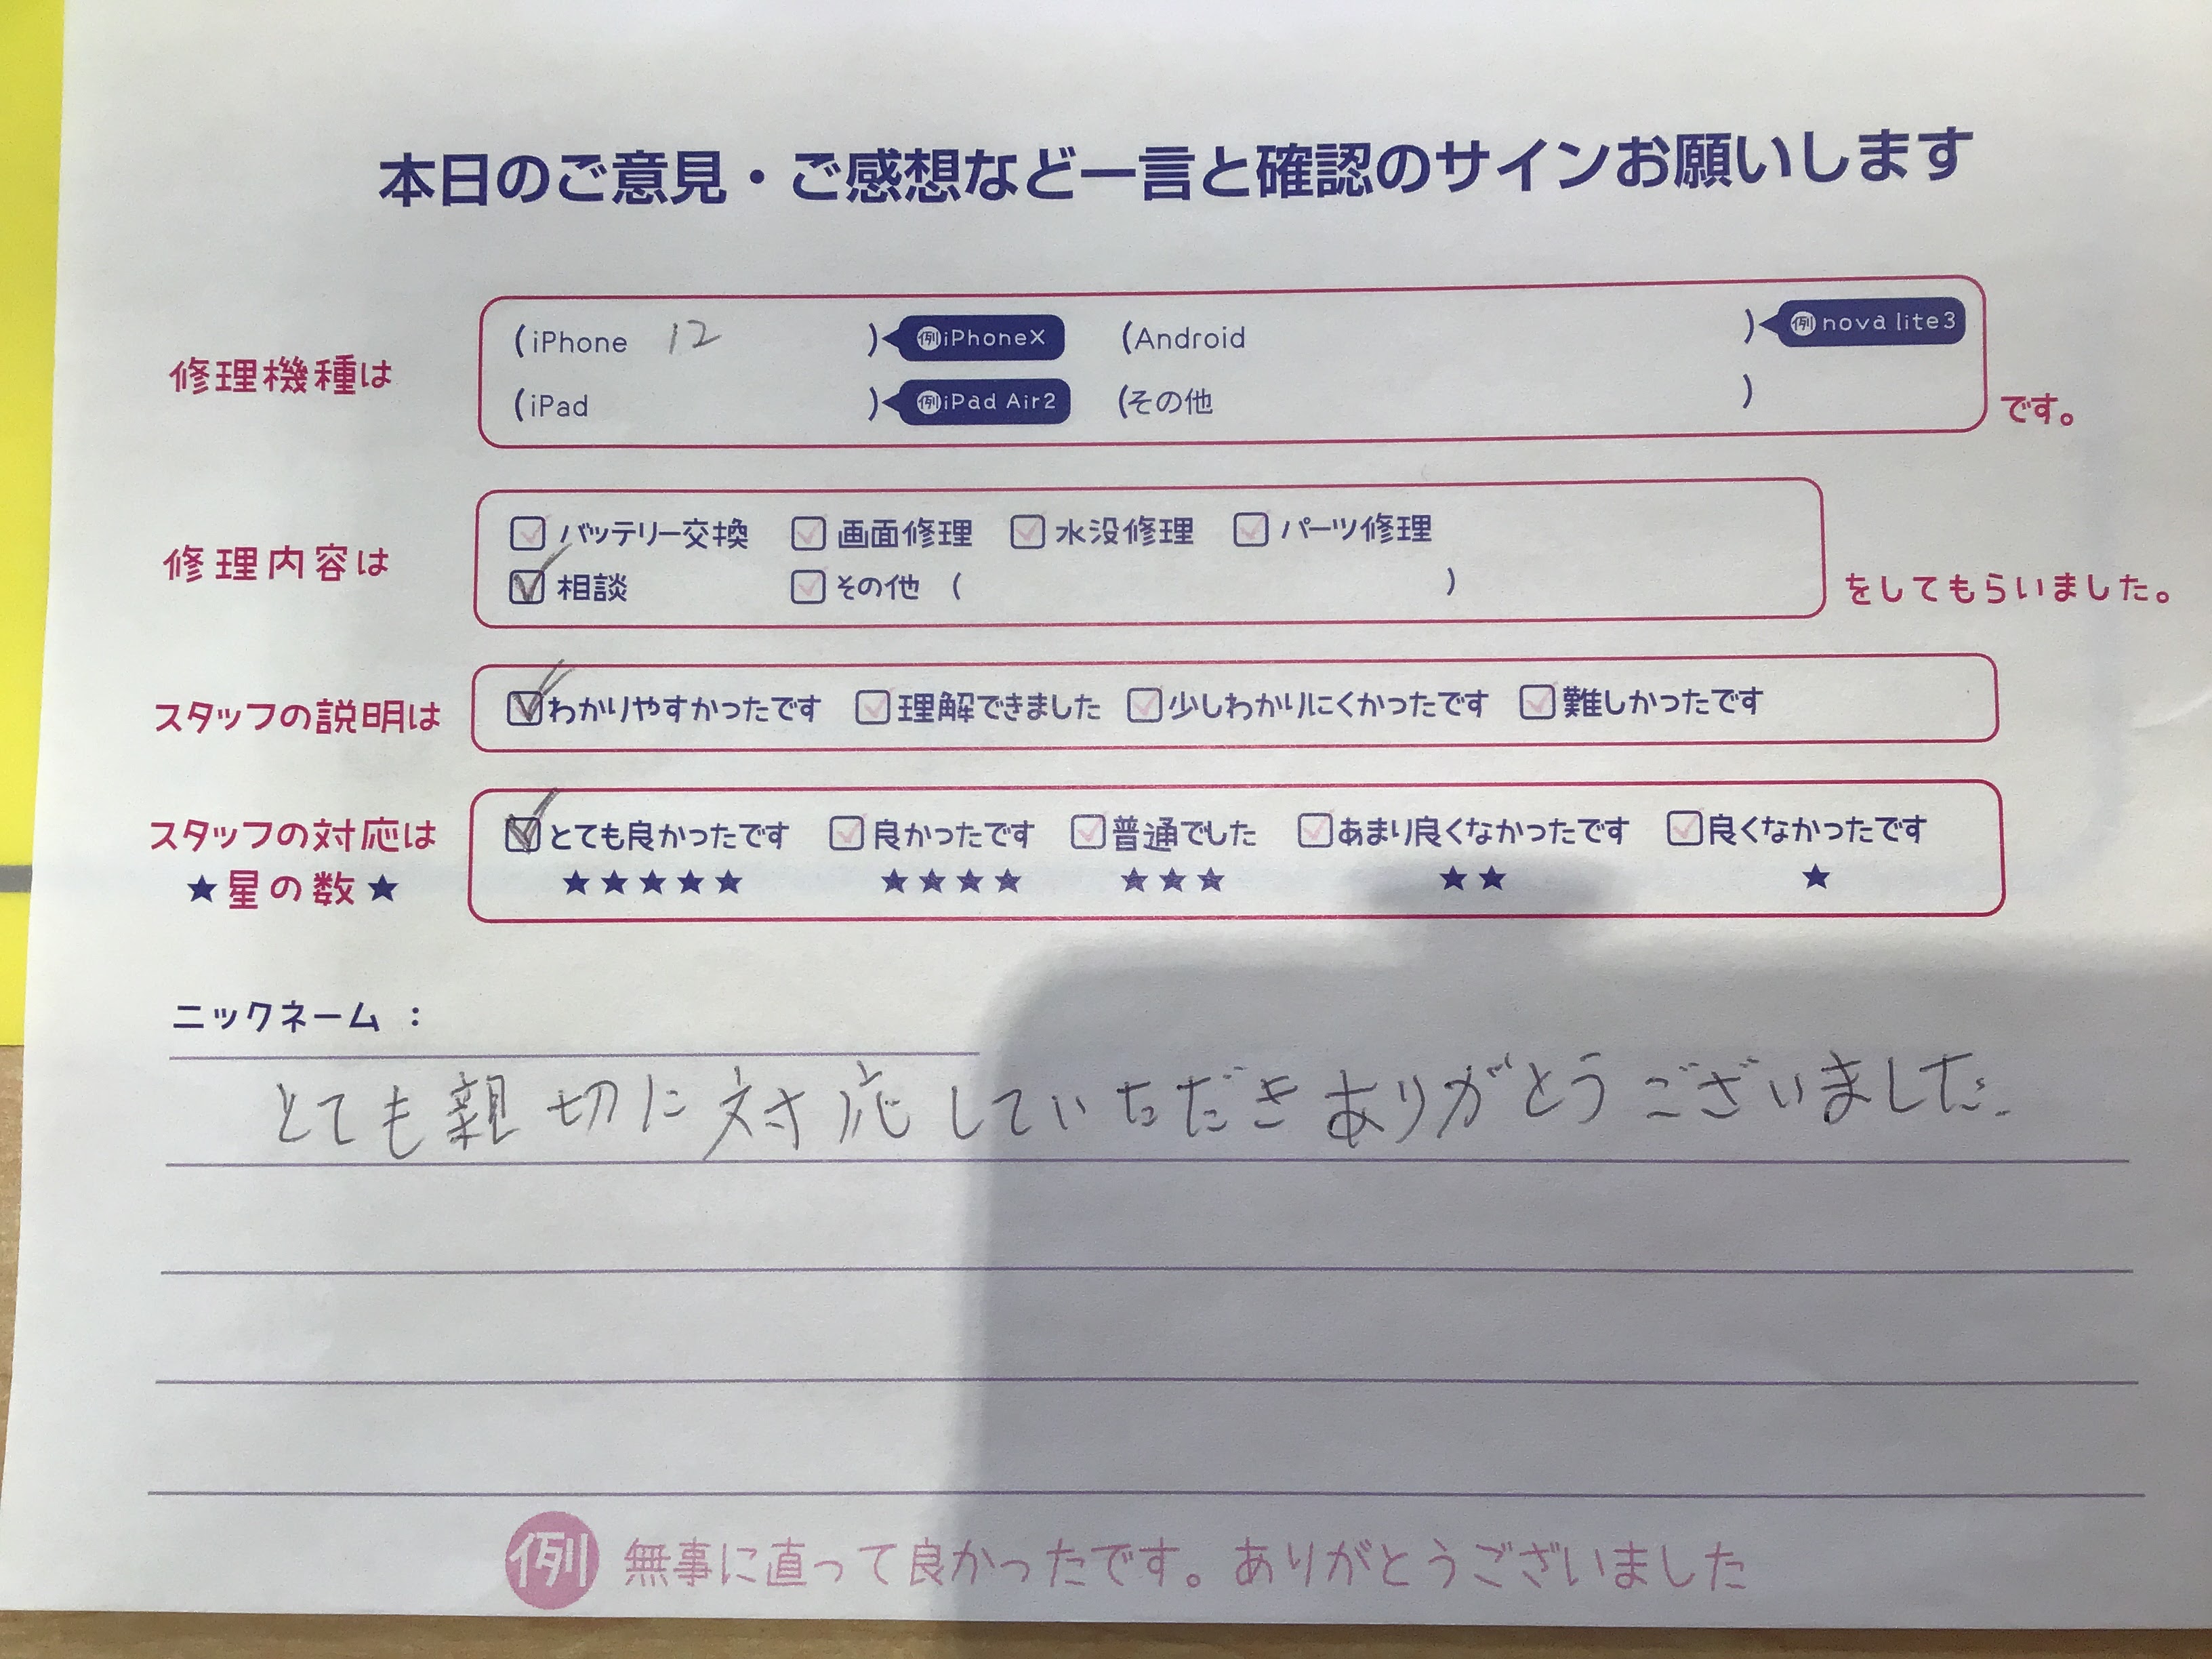 本日のご意見・ご感想など一言と確認のサインお願いします
修理機種は
(iPhone 12 ) 例iPhoneX (Android ) 例 nova lite3
(iPad ) 例iPad Air2 (その他 ) です。
修理内容は
バッテリー交換 画面修理 水没修理 パーツ修理
相談 その他 ( ) をしてもらいました。
スタッフの説明は わかりやすかったです 理解できました 少しわかりにくかったです 難しかったです
スタッフの対応は とても良かったです 良かったです 普通でした あまり良くなかったです 良くなかったです
★星の数★ ★★★★★ ★★★★ ★★★ ★★ ★
ニックネーム :
とても親切に対応していただきありがとうございました。
例 無事に直って良かったです。ありがとうございました